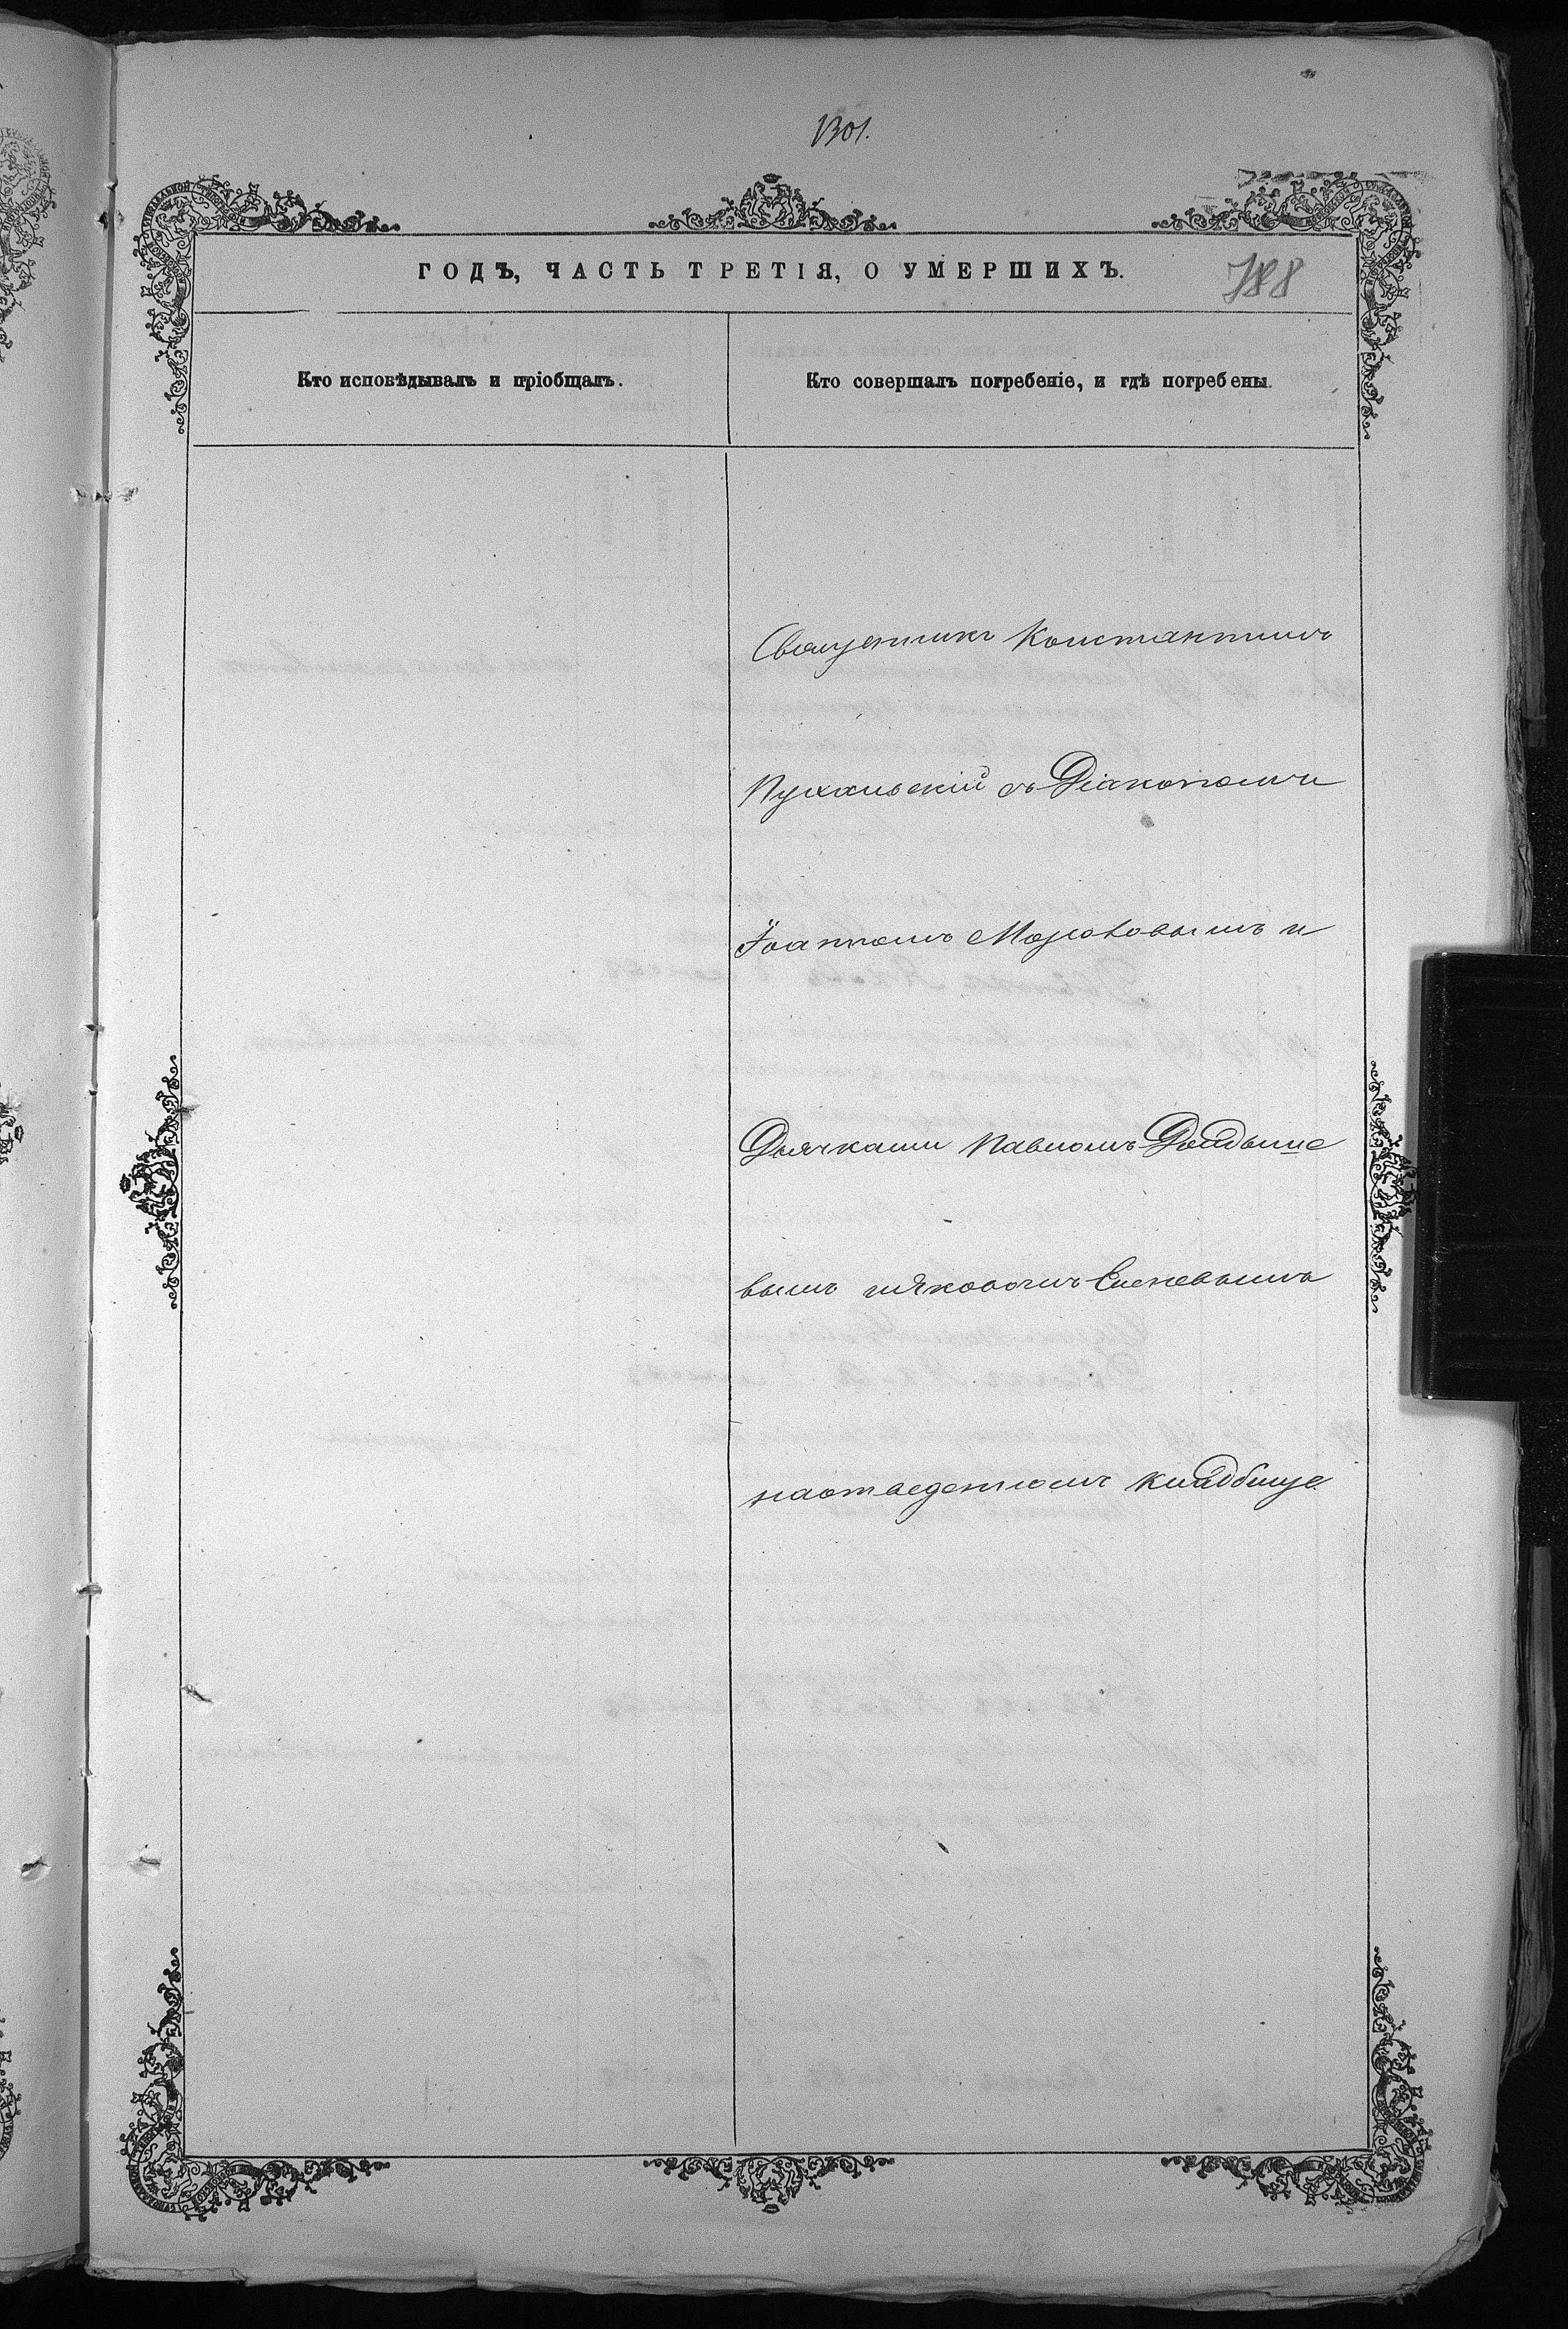 1301.
ГОДЪ, ЧАСТЬ ТРЕТІЯ, О УМЕРШИХЪ.
788
Кто исповѣдывалъ и пріобщалъ.
Кто совершалъ погребеніе, и гдѣ погребены.
Священникъ Константинъ
съ Діакономъ
Іоанномъ Морозовымъ и
Дьячками Павломъ
вымъ и Яковомъ
на отведенномъ кладбище